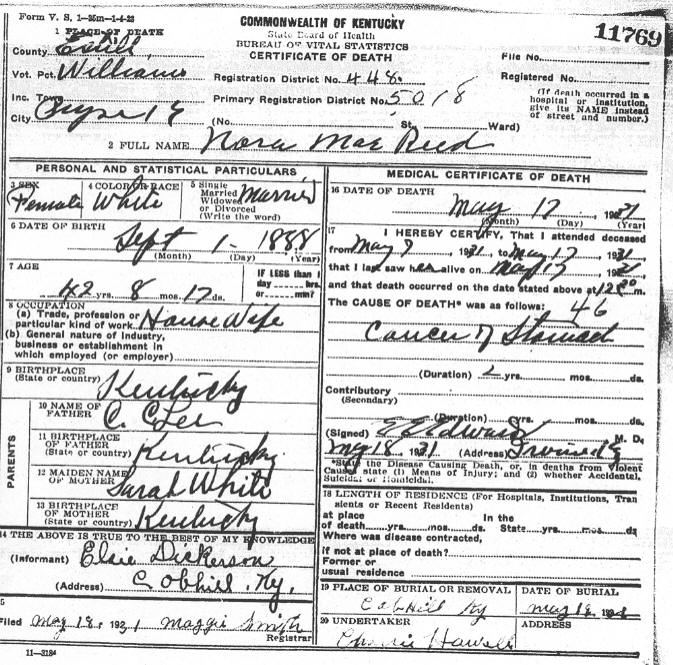 Form V. S. 1—25m—1-4-22
COMMONWEALTH OF KENTUCKY
State Board of Health
BUREAU OF VITAL STATISTICS
CERTIFICATE OF DEATH
11769
1 PLACE OF DEATH
County Estill
Vot. Pct. Williams
Inc. Town
City
Registration District No. 448.
Primary Registration District No. 5018
File No.
Registered No.
(If death occurred in a hospital or institution, give its NAME instead of street and number.)
(No. St. Ward)
2 FULL NAME Nora Mae Reed
PERSONAL AND STATISTICAL PARTICULARS
3 SEX Female
4 COLOR OR RACE White
5 Single Married Widowed or Divorced (Write the word) Married
6 DATE OF BIRTH
Sept 1 - 1888
(Month) (Day) (Year)
7 AGE
42 yrs. 8 mos. 17 ds.
IF LESS than 1 day hrs. or min?
8 OCCUPATION
(a) Trade, profession or particular kind of work House Wife
(b) General nature of industry, business or establishment in which employed (or employer)
9 BIRTHPLACE
(State or country) Kentucky
PARENTS
10 NAME OF FATHER C. C Lee
11 BIRTHPLACE OF FATHER (State or country) Kentucky
12 MAIDEN NAME OF MOTHER Sarah White
13 BIRTHPLACE OF MOTHER (State or country) Kentucky
14 THE ABOVE IS TRUE TO THE BEST OF MY KNOWLEDGE
(Informant) Elsie Dickerson
(Address) Cobhill, Ky,
Filed May 18, 1931 Maggie Smith
Registrar
11—3184
MEDICAL CERTIFICATE OF DEATH
16 DATE OF DEATH
May 17, 1931
(Month) (Day) (Year)
17 I HEREBY CERTIFY, That I attended deceased
from May 9 1931, to May 17, 1931,
that I last saw her alive on May 17, 1931,
and that death occurred on the date stated above at m.
The CAUSE OF DEATH* was as follows:
46
Cancer of Stomach
(Duration) 2 yrs. mos. ds.
Contributory
(Secondary)
(Duration) yrs. mos. ds.
(Signed) M. D.
May 18 1931 (Address) Irvine Ky
*State the Disease Causing Death, or, in deaths from Violent Causes state (1) Means of Injury; and (2) whether Accidental, Suicidal or Homicidal.
18 LENGTH OF RESIDENCE (For Hospitals, Institutions, Transients or Recent Residents)
at place of death yrs. mos. ds. In the State yrs. mos. ds.
Where was disease contracted,
if not at place of death?
Former or
usual residence
19 PLACE OF BURIAL OR REMOVAL
Cobhill Ky
DATE OF BURIAL
May 18 1931
20 UNDERTAKER
Howell
ADDRESS